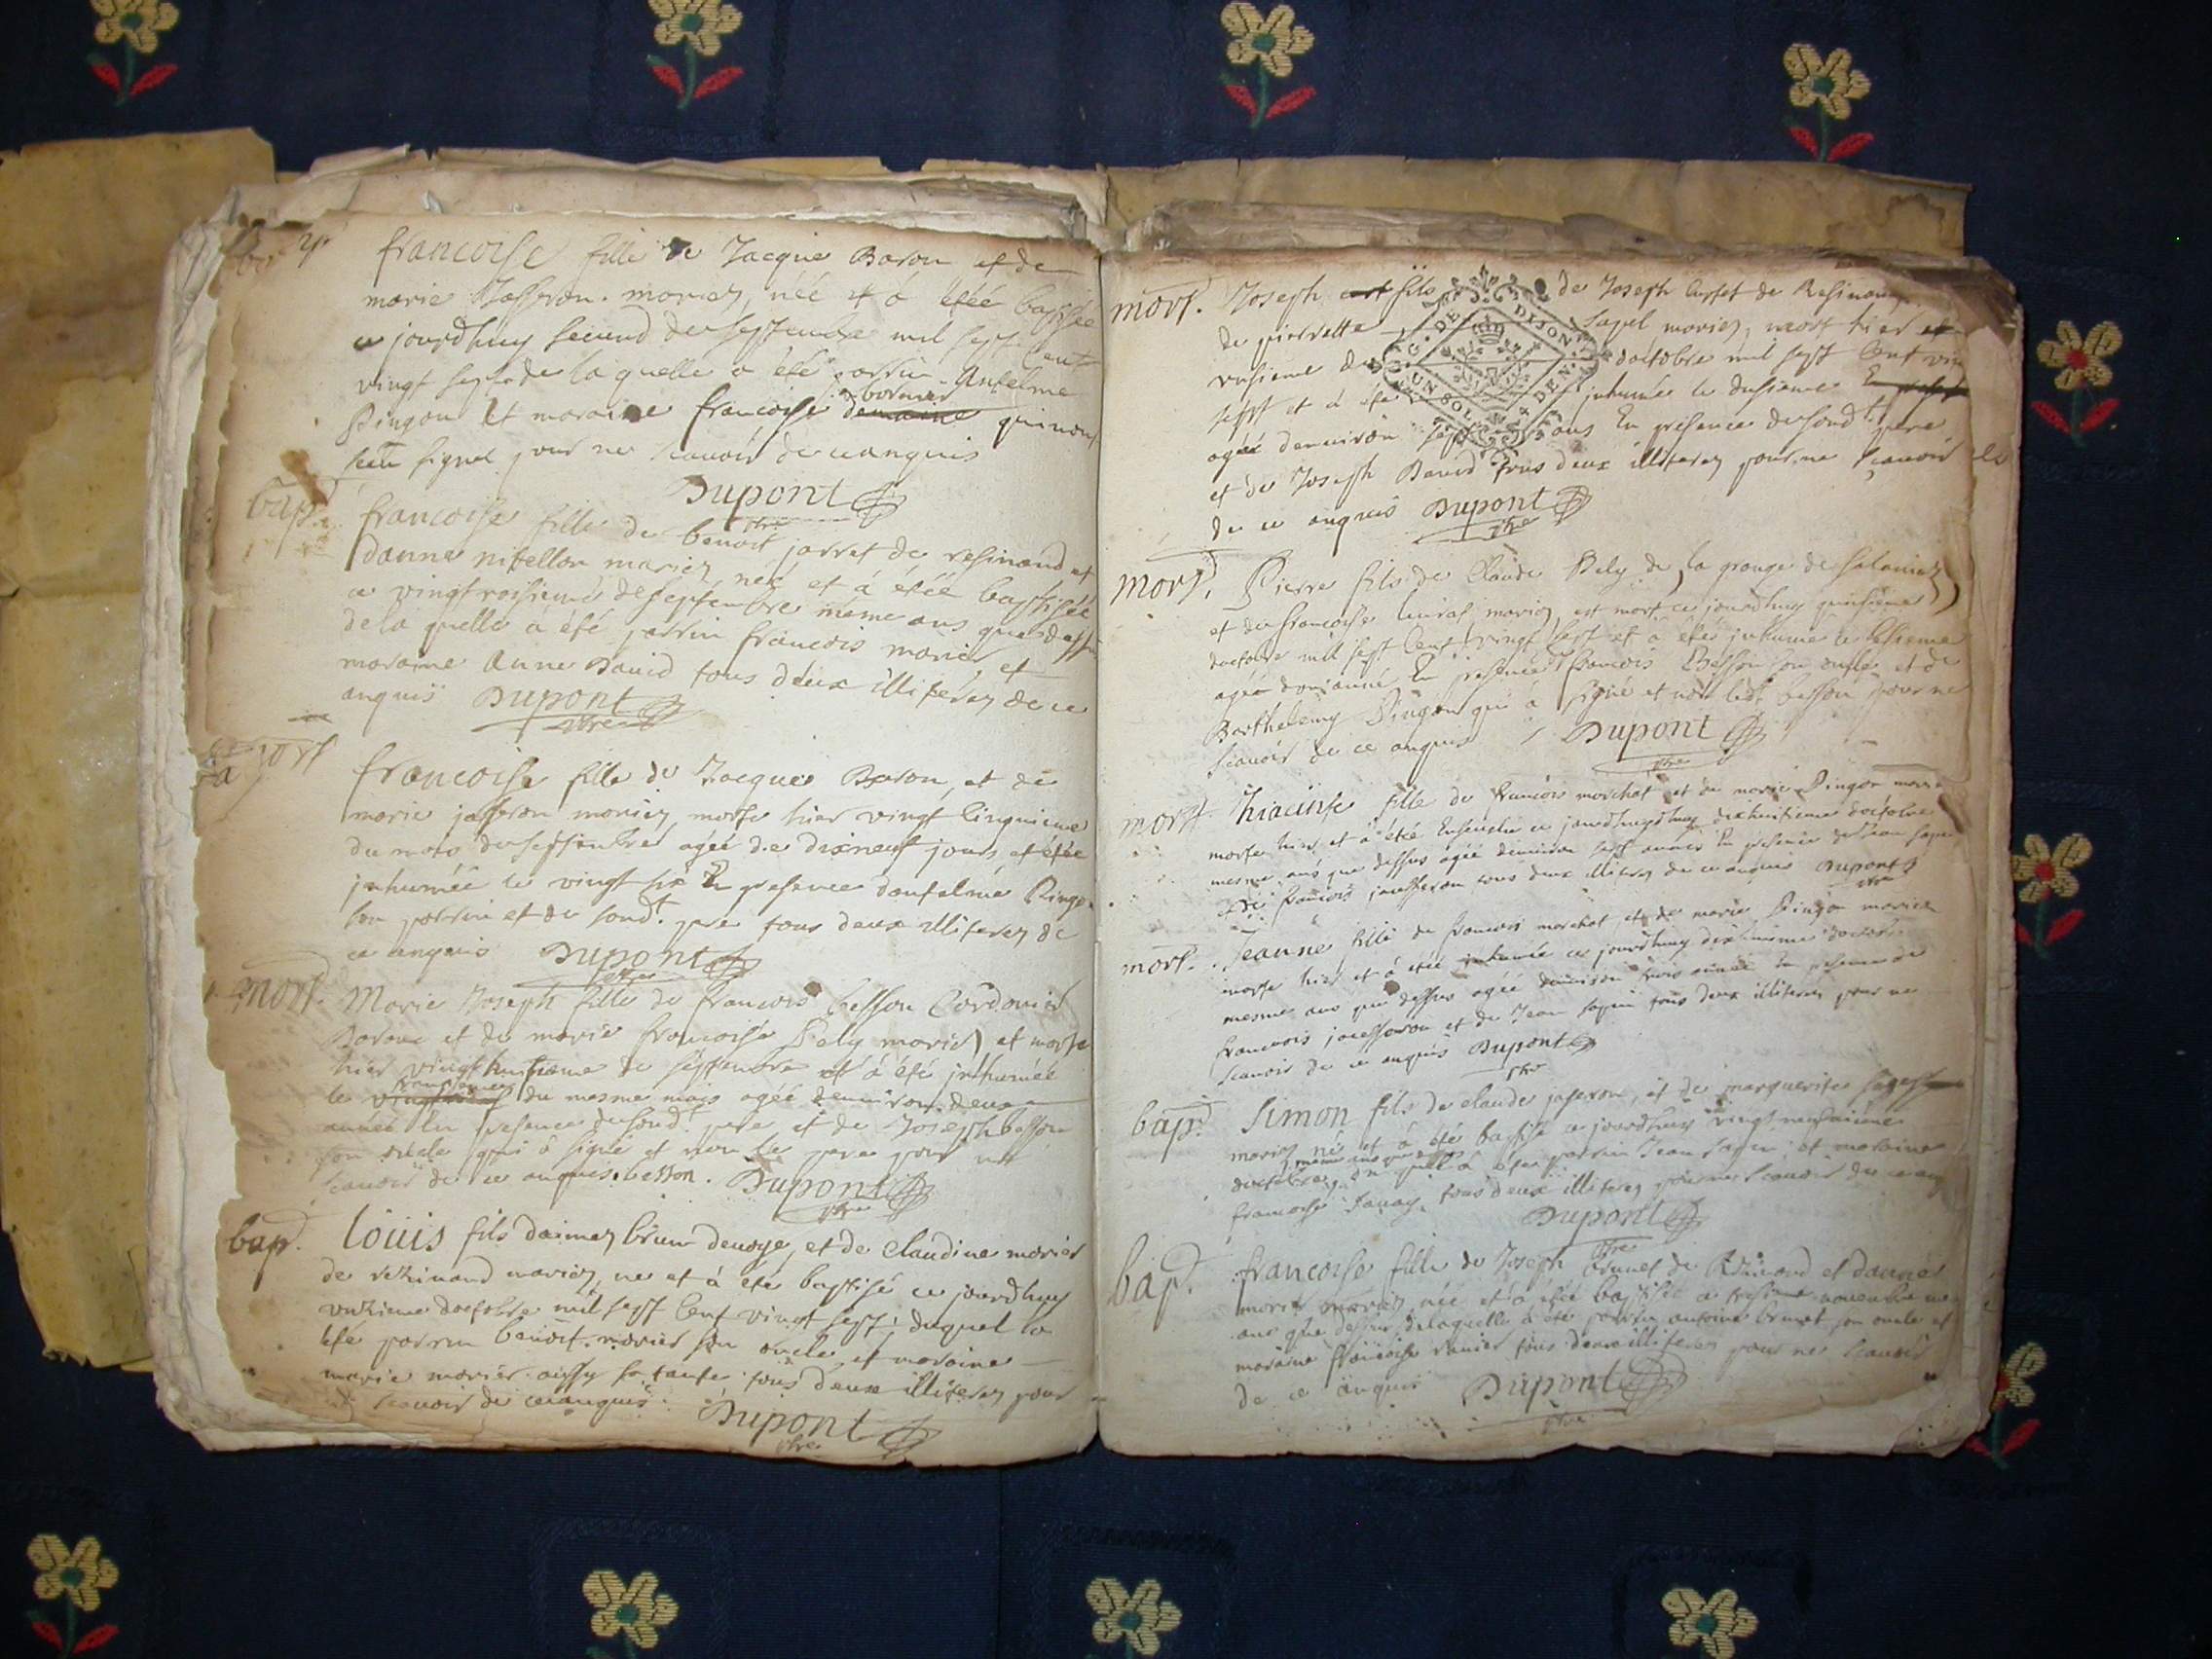 bap
francoise fille de Jacque Baron et de
marie Jasseron mariez, néé et á étéé baptisée
ce jourdhuy second de septembre mil sept cent
vingt sept de laquelle a été parrin Antelme
Pingon et maraine francoise bornier demaine qui nont
sceu signer pour ne scauoir de ce anquis
Dupont
ptre
bap.
francoise fille de benoit jarret de resinand et
danne nibellon mariez, néé et á étéé baptisée
ce vingt roisieme de septembre méme ans que dessu
de la quelle a été parrin francois marier et
maraine Anne Dauid tous deux illiterez de ce
anquis Dupont
ptre
mort
francoise fille de Jacque Baron, et de
marie jasseron mariez, morte hier vingt cinquieme
du mois de septembre agéé de dixneuf jours, et étéé
inhuméé le vingt six En presence dantelme Pingon
son parrin et de sond.t pere tous deux illiterez de
ce anquis Dupont
ptre
mort.
Marie Joseph fille de francois besson Cordonier
et de marie francoise Bely mariez et morte
hier vingt huitieme de septembre et á été inhuméé
le du mesme mois agéé denuiron deux
année En presence de sond.t pere et de Joseph besson
son oncle qui á signé et non le pere pour ne
scauoir de ce anquis. besson. Dupont
ptre
bap.
Loüis fils daimez brun denoge, et de Claudine marier
de rezinand mariez, ne et á été baptisé ce jourdhuy
vnzieme doctobre mil sept cent vingt sept; duquel a
été parrin benoit marier son oncle, et maraine
marie marier aussy sa tante tous deux illiterez pour
scauoir de ce anquis. Dupont
ptre
mort.
Joseph fils de Joseph de Resinand
de pierrette sapel mariez, mort hier
vnsieme doctobre mil sept cent vin
sept et á été inhumée le dusieme
agéé denuiron sept ans En presence de sond.t pere
et de Joseph Dauid tous deux illiterez pour ne scauoir
de ce anquis Dupont
ptre
G. DE DIJON
UN SOL 4 DEN.
mort.
Pierre fils de Claude Bely de la grange de
et de francoise mariez, est mort ce jourdhuy quinsieme
doctobre mil sept cent vingt sept et á été inhumé le sesieme
agéé En presence francois Besson son oncle et de
Barthelemy Pingon qui á signé et non led.t besson pour ne
scauoir de ce anquis Dupont
ptre
mort.
hiacinte fille de francois marchat et de marie Pingon marie
morte hier et á étéé Enseuelie ce jourdhuy dixhuitieme doctobre
mesme ans que dessus agéé denuiron sept année En presence de Jean sapin
et de francois jasseron tous deux illiterez de ce anquis Dupont
ptre
mort.
Jeanne fille de francois marchat, et de marie Pingon mariez
morte hier et á étéé inhumée ce jourdhuy dixneuuieme doctob
mesme ans que dessus agéé denuiron trois année En presence de
francois jasseron et de Jean sapin tous deux illiterez pour ne
scauoir de ce anquis Dupont
ptre
bap.
Simon fils de claude jasseron, et de marguerite
mariez né et á été baptisé ce jourdhuy vingt
méme ans que dessus
doctobre, du quel á été parrin Jean sapin et maraine
francoise tous deux illiterez pour ne scauoir de ce anq
Dupont
ptre
bap.
francoise fille de Joseph brunet de Résinand et danne
marier mariez, néé et á étéé baptisée ce nouembre me
ans que dessus de laquelle á été parrin antoine brunet son oncle et
maraine francoise tous deux illiterez pour ne scauoir
de ce anquis Dupont
ptre